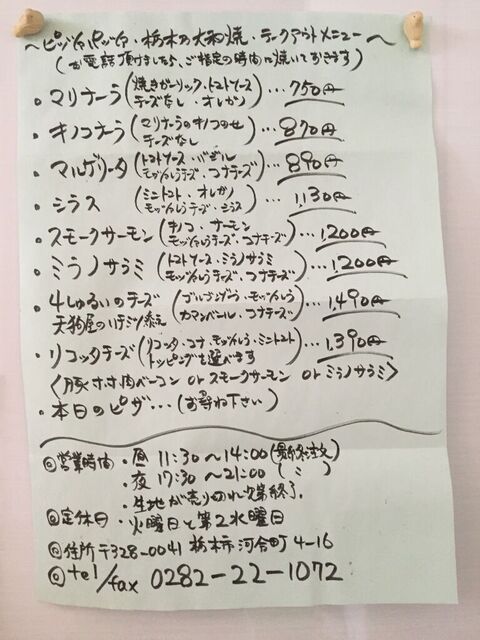 〜ピッツァパッツァ・栃木の大和焼・テークアウトメニュー〜
(お電話頂けましたら、ご指定の時間に焼いておきます)
・マリナーラ(焼きガーリック・トマトソース チーズなし・オレガノ)…750円
・キノコナーラ(マリナーラのキノコのせ チーズなし)…870円
・マルゲリータ(トマトソース・バジル モッツァレラチーズ・コナチーズ)…890円
・シラス(ミニトマト・オレガノ モッツァレラチーズ・シラス)…1,130円
・スモークサーモン(キノコ・サーモン モッツァレラチーズ・コナチーズ)…1,200円
・ミラノサラミ(トマトソース・ミラノサラミ モッツァレラチーズ・コナチーズ)…1,200円
・4しゅるいのチーズ(ゴルゴンゾーラ・モッツァレラ カマンベール・コナチーズ)…1,490円
天狗屋のハチミツ添え
・リコッタチーズ(リコッタ・コナ・モッツァレラ・ミニトマト トッピングも選べます)…1,390円
〈豚肉ベーコン or スモークサーモン or ミラノサラミ〉
・本日のピザ…(お尋ね下さい)
◎営業時間・昼11:30〜14:00(最終注文)
・夜17:30〜21:00(〃)
・生地が売り切れ次第終了.
◎定休日・火曜日と第2水曜日
◎住所〒328-0041 栃木市河合町4-16
◎tel/fax 0282-22-1072